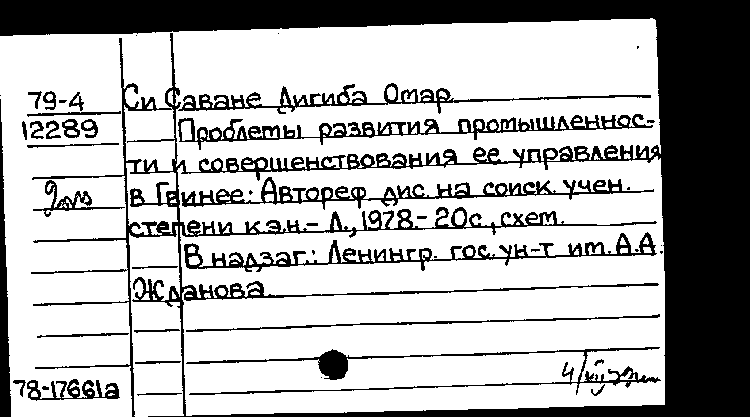 79-4 Си Саване Дигиба Омар
12289 Проблемы развития промышленнос-
ти и совершенствования ее управления
в Гвинее: Автореф дис. на соиск. учен.
степени к.э.н.- Л., 1978.- 20с., схем.
В надзаг.: Ленингр. гос. ун-т им. А.А.
Жданова
78-17661а